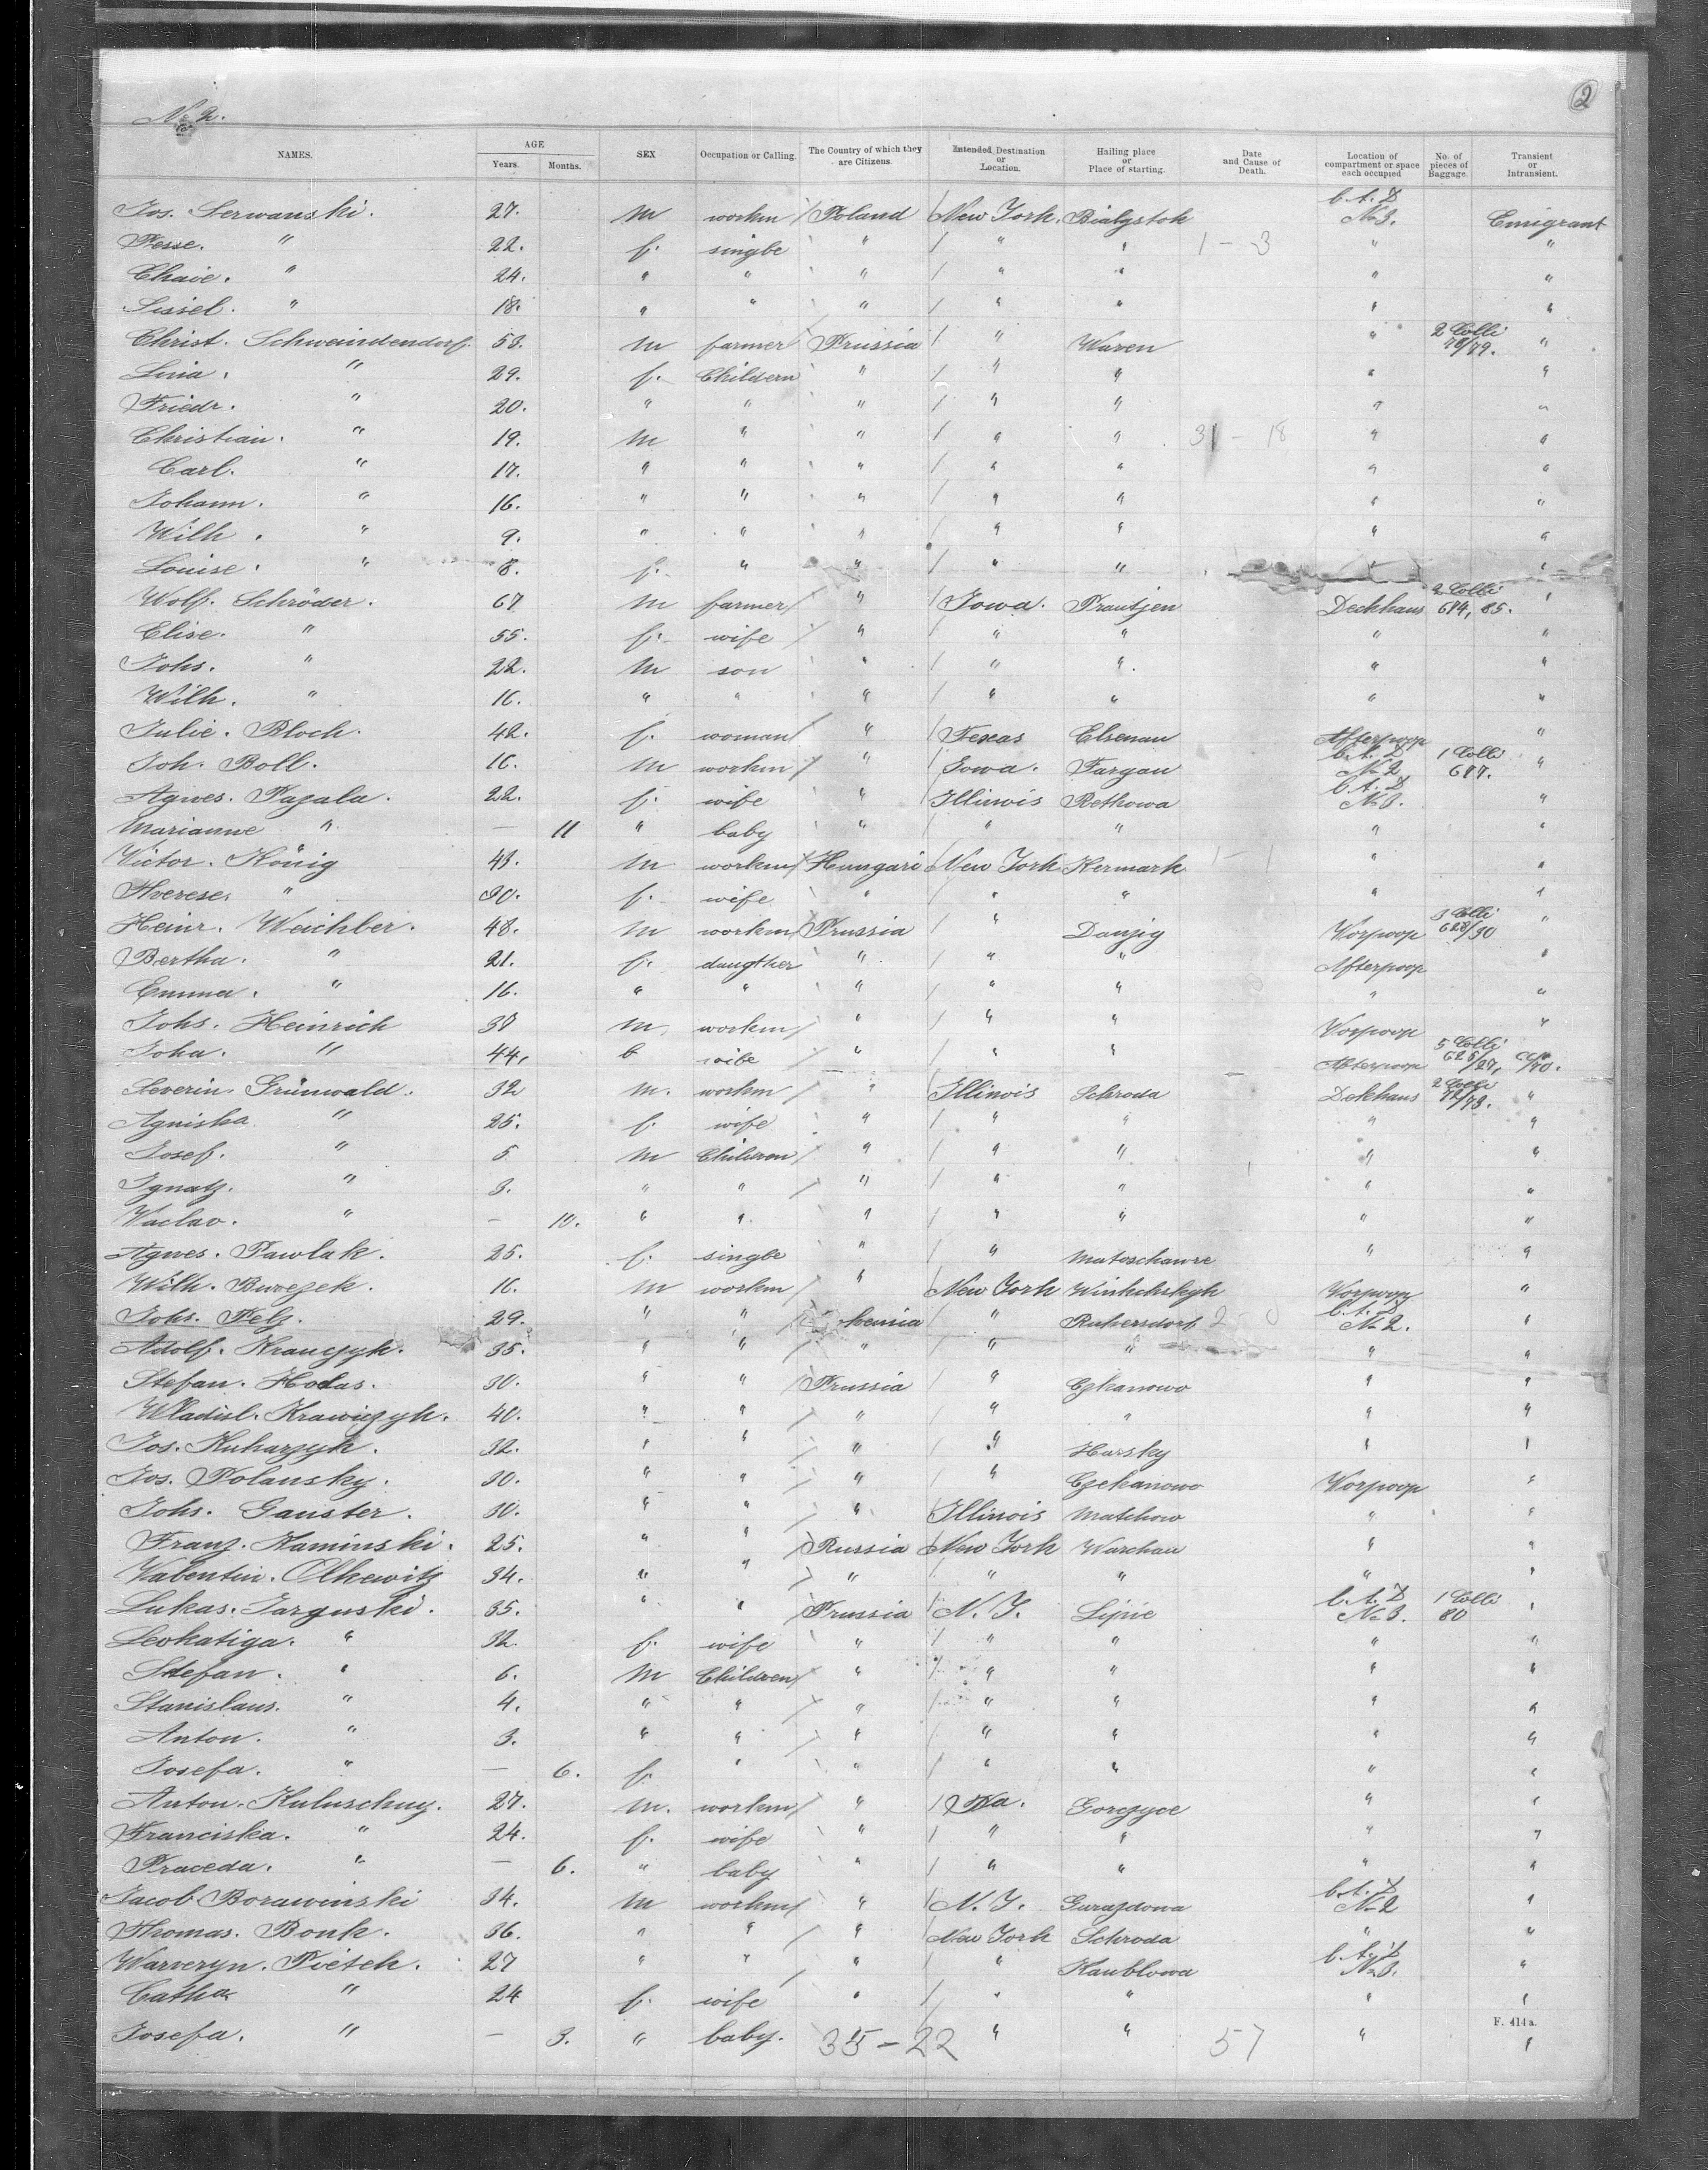 No 2.
2
NAMES. AGE Years. Months. SEX Occupation or Calling. The Country of which they are Citizens. Intended Destination or Location. Hailing place or Place of starting. Date and Cause of Death. Location of compartment or space each occupied No. of pieces of Baggage. Transient or Intransient.
Jos. Serwanski. 27. m workm Poland New York. Bialystok No 3. Emigrant
Pesse. " 22. f. single " " " 1 - 3 " "
Chaie. " 24. " " " " " " "
Sissel. " 18. " " " " " " "
Christ. Schweindendorf. 53. m farmer Prussia " Waren " 2 Colli 78/79. "
Lina. " 29. f. Childern " " " " "
Friedr. " 20. " " " " " " "
Christian. " 19. m " " " " 31 - 18 " "
Carl. " 17. " " " " " " "
Johann. " 16. " " " " " " "
Wilh. " 9. " " " " " " "
Louise. " 8. f. " " " " " "
Wolf. Schröder. 67 m farmer " Iowa. Prautjen Deckhaus 2 Colli 684, 85. "
Elise. " 55. f. wife " " " " "
Johs. " 22. m son " " " " "
Wilh. " 16. " " " " " " "
Julie. Bloch. 42. f. woman " Texas Elsenau Afterpoop "
Joh. Boll. 16. m workm " Iowa. Fargau No 2 1 Colli 687. "
Agnes. Pazala. 22. f. wife " Illinois Rethowa No 3. "
Marianne " — 11 " baby " " " " "
Victor. König 43. m workm Hungari New York Kermark 1 - 1 " "
Therese. " 30. f. wife " " " " "
Heinr. Weichber. 48. m workm Prussia " Danzig Vorpoop 3 Colli 628/30 "
Bertha. " 21. f. daugther " " " Afterpoop "
Emma. " 16. " " " " " " "
Johs. Heinrich 30 m. workm " " " Vorpoop "
Joha. " 44. f wife " " " Afterpoop 5 Colli 625/27, "
Severin. Grünwald. 32 m. workm " Illinois Schroda Dekhaus 2 Colli 72/73. "
Agniska " 25. f. wife " " " " "
Josef. " 5 m Children " " " " "
Ignatz. " 3. " " " " " " "
Waclav. " — 10. " " " " " " "
Agnes. Pawlak. 25. f. single " " Matoschawre " "
Wilh. Burczek. 16. m workm " New York Vorpoop "
Johs. Pelz. 29. " " hemia " Rukersdorf No 2. "
Adolf. Kranczyk. 35. " " " " " " "
Stefan. Hodas. 30. " " Prussia " Czkanowo " "
Wladisl. Krawiczyk. 40. " " " " " " "
Jos. Kuharzyk. 32. " " " " Hursky " "
Jos. Polansky. 30. " " " " Czekanowo Vorpoop "
Johs. Ganster. 30. " " " Illinois Matchow " "
Franz. Kaminski. 25. " " Russia New York Warchau " "
Valentin. Olkewitz 34. " " " " " " "
Lukas. Jarguski. 35. " " Prussia N. Y. Lipie No 3. 1 Colli 80 "
Leokatiga. " 32. f. wife " " " " "
Stefan. " 6. m Children " " " " "
Stanislaus. " 4. " " " " " " "
Anton. " 3. " " " " " " "
Josefa. " — 6. f. " " " " " "
Anton. Kuluschny. 27. m. workm " Pa. Gorczyce " "
Franciska. " 24. f. wife " " " " "
Praceda. " — 6. " baby " " " " "
Jacob Borawinski 34. m workm " N. Y. Gurazdowa No 2 "
Thomas. Bonk. 36. " " " New York Schroda " "
Warveryn. Pietch. 27 " " " " Kaublowa No 3. "
Catha " 24 f. wife " " " " "
Josefa. " — 3. " baby. " " " " "
35 - 22 57
F. 414 a.